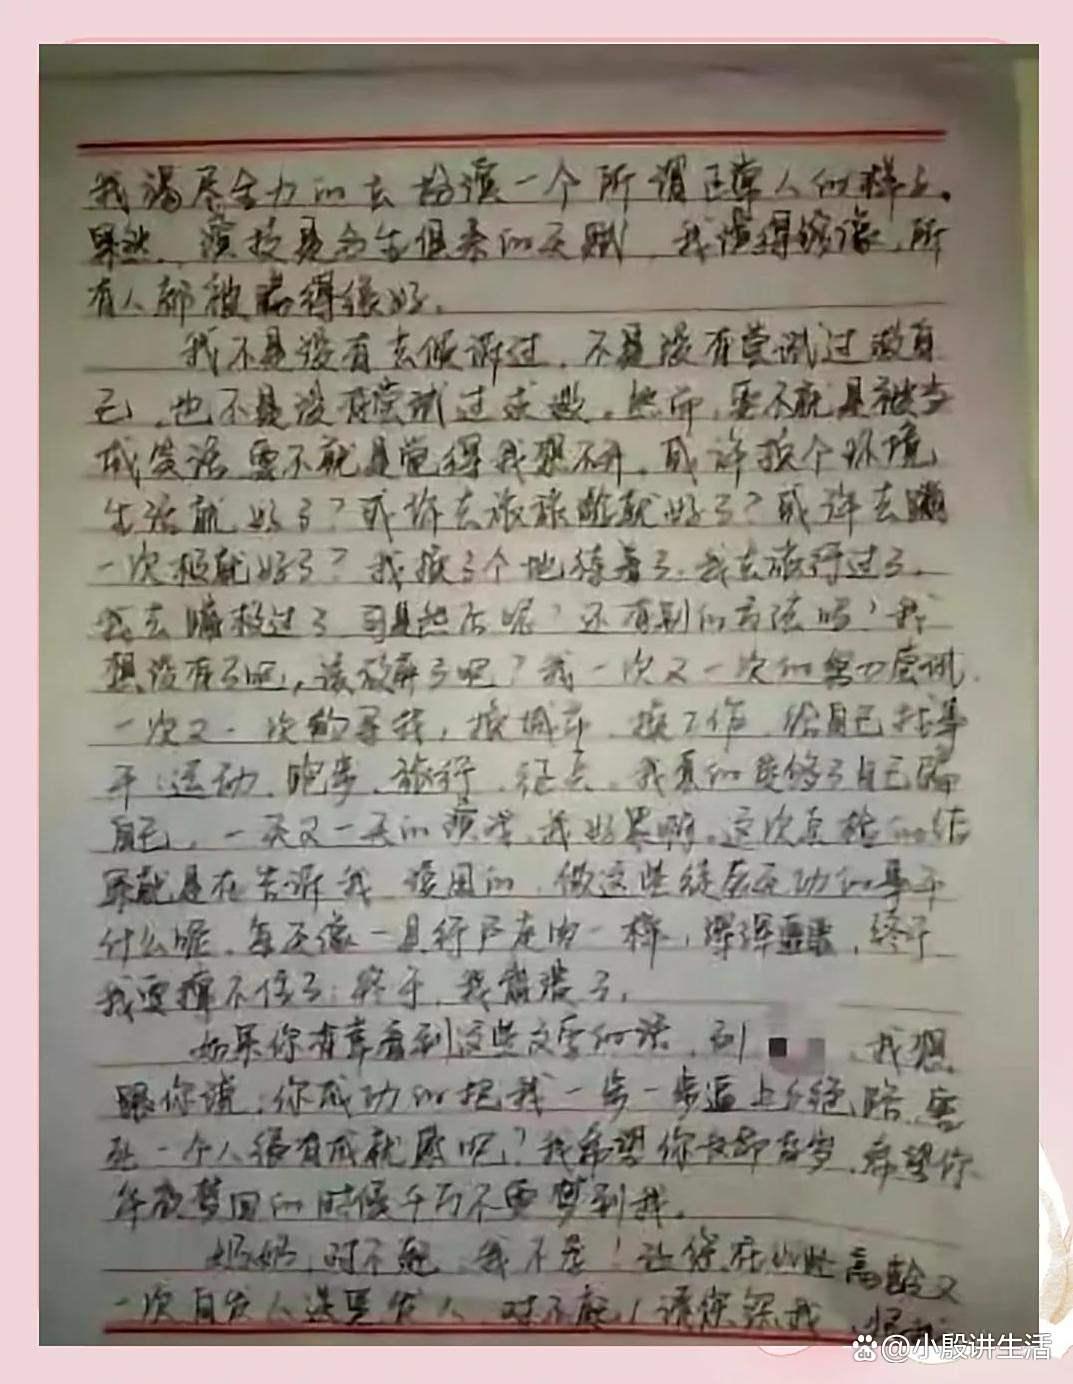 我竭尽全力的去扮演一个所谓正常人的样子。
果然，演技是与生俱来的天赋，我演得很像，所
有人都被骗得很好。
我不是没有去倾诉过，不是没有尝试过救自
己，也不是没有尝试过求救。然而，要不就是被当
成笑话要不就是觉得我想不开。或许换个环境
生活就好了？或许去旅旅游就好了？或许去蹦
一次极就好了？我换了个地待着了，我去旅行过了，
我去蹦极过了可是然后呢？还有别的方法吗？我
想没有了吧，该放弃了吧？我一次又一次的努力尝试，
一次又一次的寻找，换城市、换工作、给自己找事
干：运动、跑步、旅行、。我真的受够了自己骗
自己，一天又一天的演戏，我好累啊。这次的结
果就是在告诉我，没用的，做这些徒劳无功的事干
什么呢，每天像一具行尸走肉一样，浑浑噩噩，终于
我要撑不住了；终于，我崩溃了，
如果你有幸看到这些文字的话，刘，我想
跟你说：你成功的把我一步一步逼上了绝路，害
死一个人很有成就感吧？我希望你长命百岁，希望你
午夜梦回的时候千万不要梦到我。
奶奶，对不起，我不孝！让您在如此高龄又
一次白发人送黑发人，对不起！请您原谅我，
@小殷讲生活